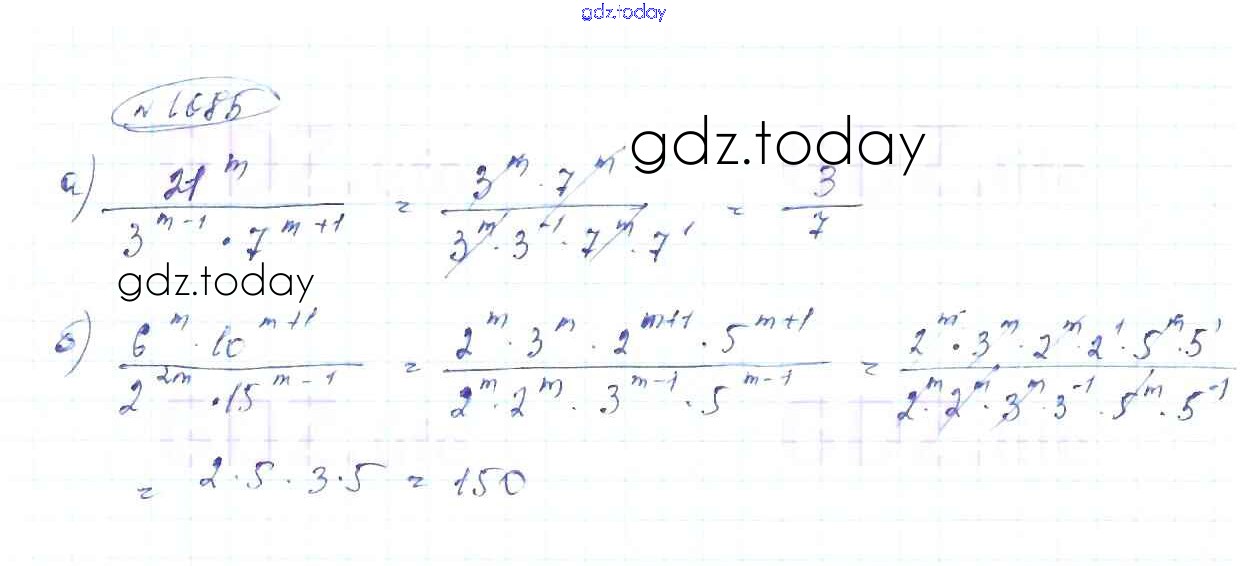 gdz.today
№ 1685
gdz.today
а) 21^m / (3^(m-1) · 7^(m+1)) = (3^m · 7^m) / (3^m · 3^-1 · 7^m · 7^1) = 3/7
gdz.today
б) (6^m · 10^(m+1)) / (2^(2m) · 15^(m-1)) = (2^m · 3^m · 2^(m+1) · 5^(m+1)) / (2^m · 2^m · 3^(m-1) · 5^(m-1)) = (2^m · 3^m · 2^m · 2^1 · 5^m · 5^1) / (2^m · 2^m · 3^m · 3^-1 · 5^m · 5^-1)
= 2 · 5 · 3 · 5 = 150